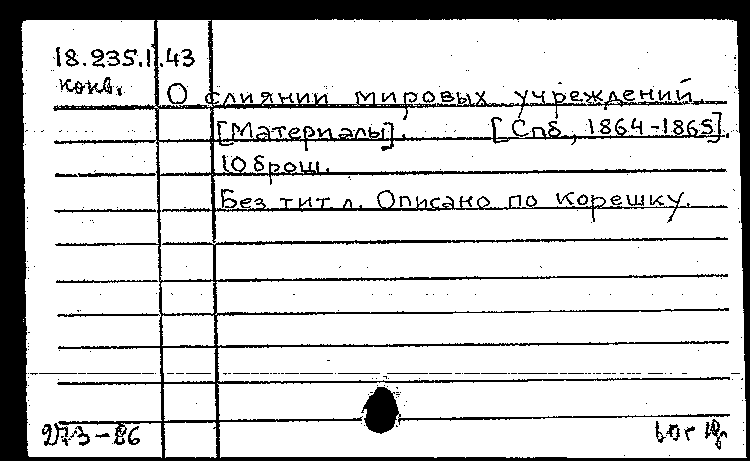 18.235.1.43
конв.
О слиянии мировых учреждений.
[Материалы]. [Спб, 1864-1865].
10 брош.
Без титл. Описано по корешку.
273-86